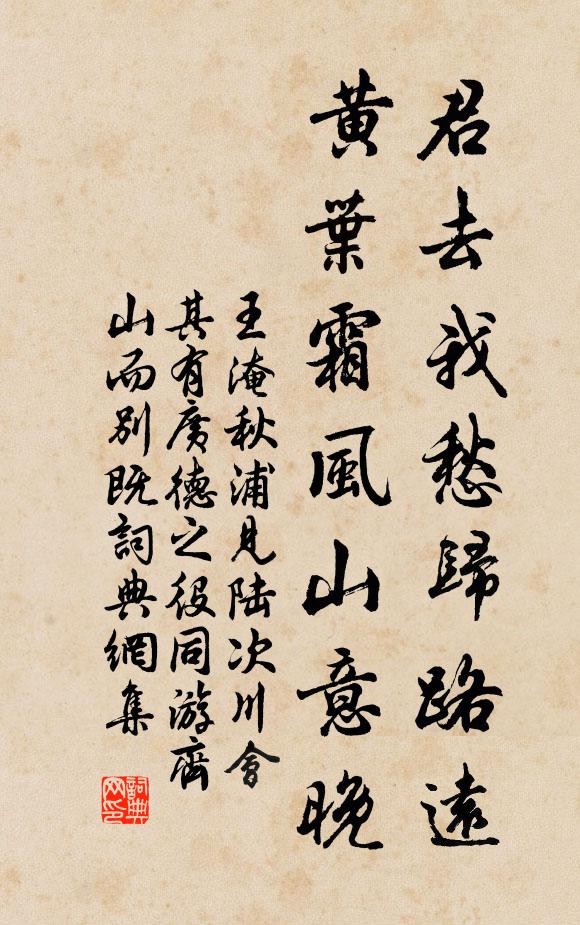 君去我愁歸路遠
黃葉霜風山意晚
王淹秋浦見陸次川會
其有廣德之役同游齊
山而別既詞典網集
詞典
网印